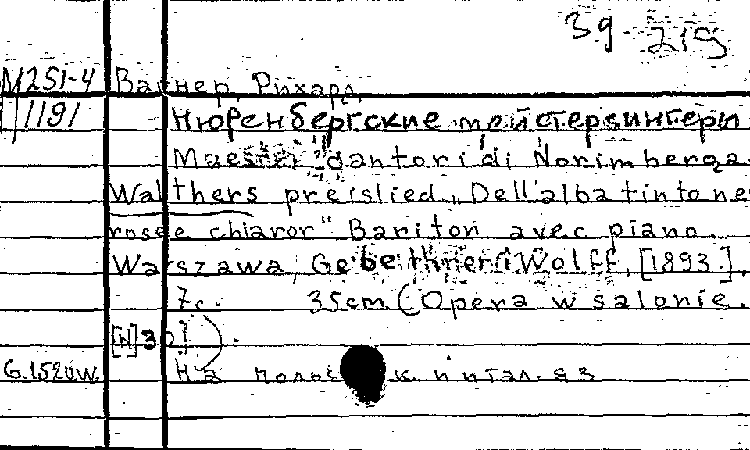 39-219
М251-4 Вагнер, Рихард.
1191 Нюренбергские мейстерзингеры
Maestri cantori di Norimberga
Walthers preislied, "Dell'alba tinto ne
rosee chiaror" Bariton avec piano.
Warszawa, Gebethner i Wolff, [1893].
7с. 35cm (Opera w salonie.
[N]30]).
G.1520W. На польск. и итал. яз